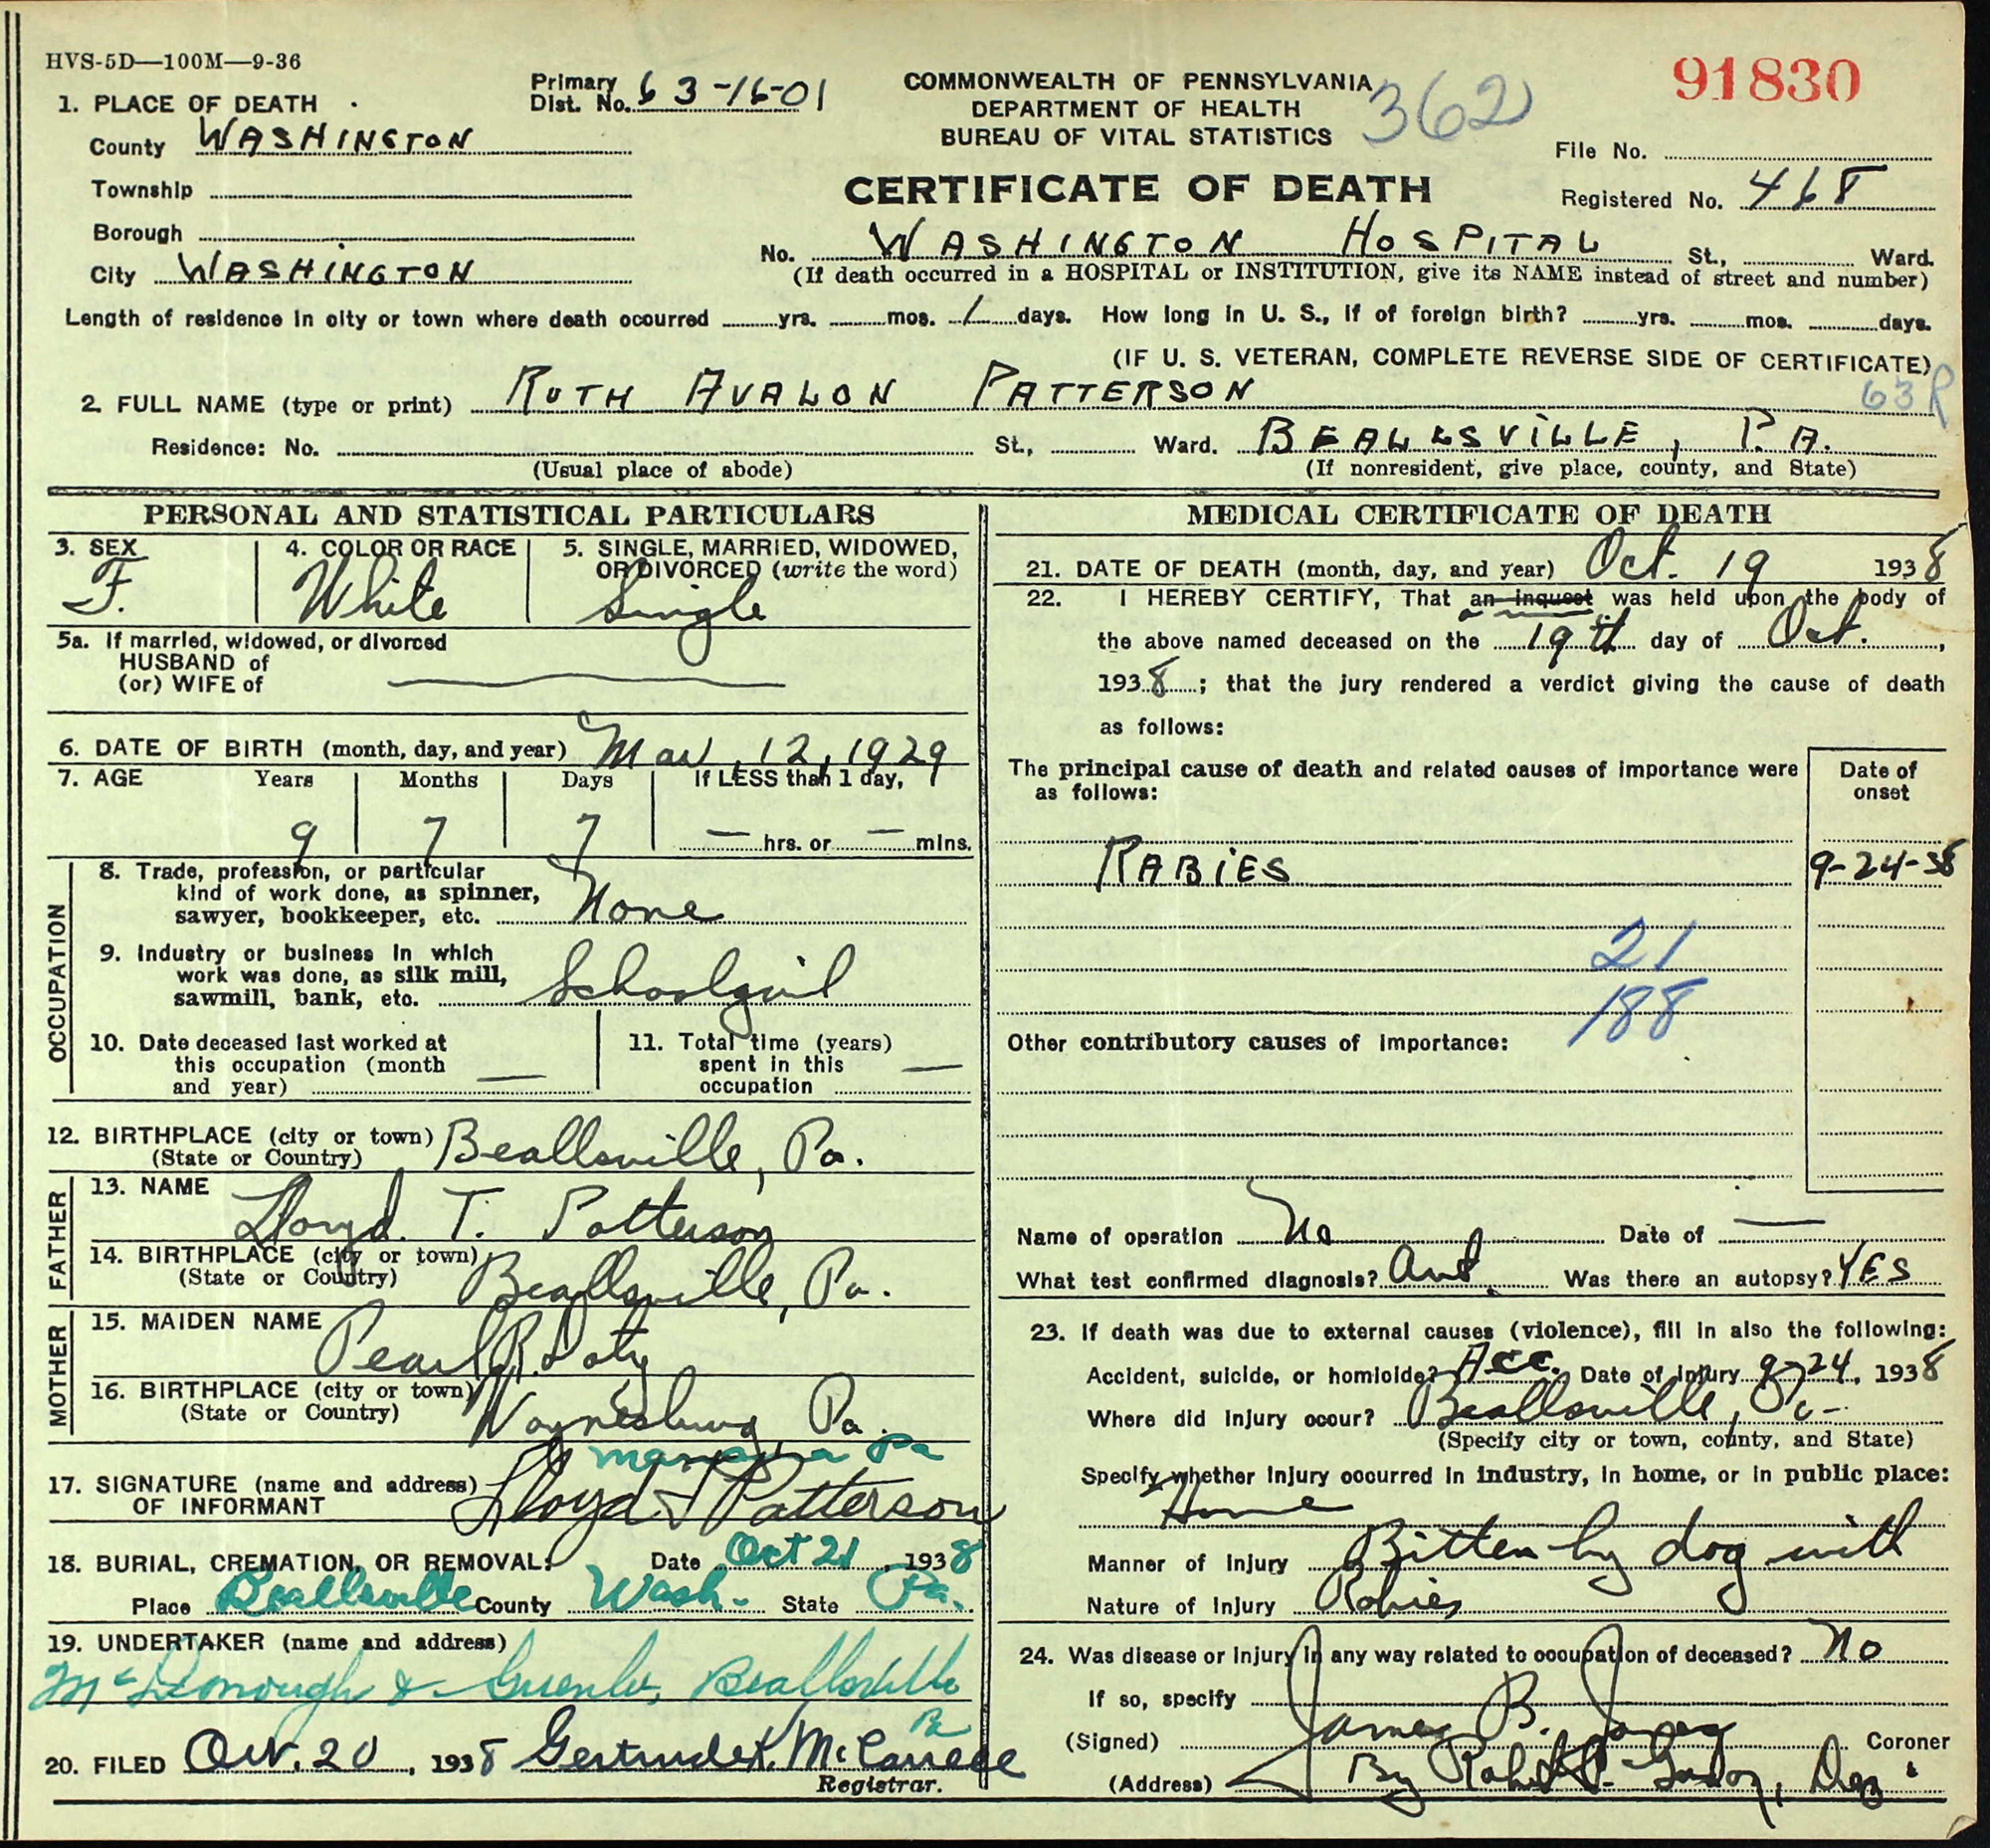 HVS-5D—100M—9-36
91830
1. PLACE OF DEATH
Primary Dist. No. 63-16-01
COMMONWEALTH OF PENNSYLVANIA
DEPARTMENT OF HEALTH
BUREAU OF VITAL STATISTICS
362
County WASHINGTON
File No.
Township
CERTIFICATE OF DEATH
Registered No. 468
Borough
No. WASHINGTON HOSPITAL St., Ward.
City WASHINGTON
(If death occurred in a HOSPITAL or INSTITUTION, give its NAME instead of street and number)
Length of residence in city or town where death occurred yrs. mos. 1 days. How long in U. S., if of foreign birth? yrs. mos. days.
(IF U. S. VETERAN, COMPLETE REVERSE SIDE OF CERTIFICATE)
2. FULL NAME (type or print) RUTH AVALON PATTERSON
63R
Residence: No. St., Ward. BEALLSVILLE, PA.
(Usual place of abode) (If nonresident, give place, county, and State)
PERSONAL AND STATISTICAL PARTICULARS
3. SEX
F.
4. COLOR OR RACE
White
5. SINGLE, MARRIED, WIDOWED,
OR DIVORCED (write the word)
Single
5a. If married, widowed, or divorced
HUSBAND of
(or) WIFE of
6. DATE OF BIRTH (month, day, and year) Mar. 12, 1929
7. AGE Years Months Days If LESS than 1 day,
9 7 7 — hrs. or — mins.
OCCUPATION
8. Trade, profession, or particular
kind of work done, as spinner,
sawyer, bookkeeper, etc. None
9. Industry or business in which
work was done, as silk mill,
sawmill, bank, etc. Schoolgirl
10. Date deceased last worked at
this occupation (month
and year) —
11. Total time (years)
spent in this
occupation —
12. BIRTHPLACE (city or town) Beallsville, Pa.
(State or Country)
FATHER
13. NAME Lloyd. T. Patterson
14. BIRTHPLACE (city or town) Beallsville, Pa.
(State or Country)
MOTHER
15. MAIDEN NAME Pearl R. Doty
16. BIRTHPLACE (city or town) Waynesburg Pa.
(State or Country)
Pa
17. SIGNATURE (name and address) Lloyd T Patterson
OF INFORMANT
18. BURIAL, CREMATION, OR REMOVAL: Date Oct 21, 1938
Place Beallsville County Wash. State Pa.
19. UNDERTAKER (name and address)
McDonough & Beallsville
Pa
20. FILED Oct. 20, 1938 Gertrude K.
Registrar.
MEDICAL CERTIFICATE OF DEATH
21. DATE OF DEATH (month, day, and year) Oct. 19 1938
22. I HEREBY CERTIFY, That an inquest was held upon the body of
the above named deceased on the 19th day of Oct.,
1938; that the jury rendered a verdict giving the cause of death
as follows:
The principal cause of death and related causes of importance were
as follows:
Date of
onset
RABIES 9-24-38
21
188
Other contributory causes of importance:
Name of operation No Date of —
What test confirmed diagnosis? Aut. Was there an autopsy? YES
23. If death was due to external causes (violence), fill in also the following:
Accident, suicide, or homicide? Acc. Date of injury 9-24, 1938
Where did injury occur? Beallsville, Pa.
(Specify city or town, county, and State)
Specify whether injury occurred in industry, in home, or in public place:
Home
Manner of Injury Bitten by dog with
Nature of Injury Rabies
24. Was disease or injury in any way related to occupation of deceased? No
If so, specify
(Signed) James B. Jones Coroner
(Address) By Robert